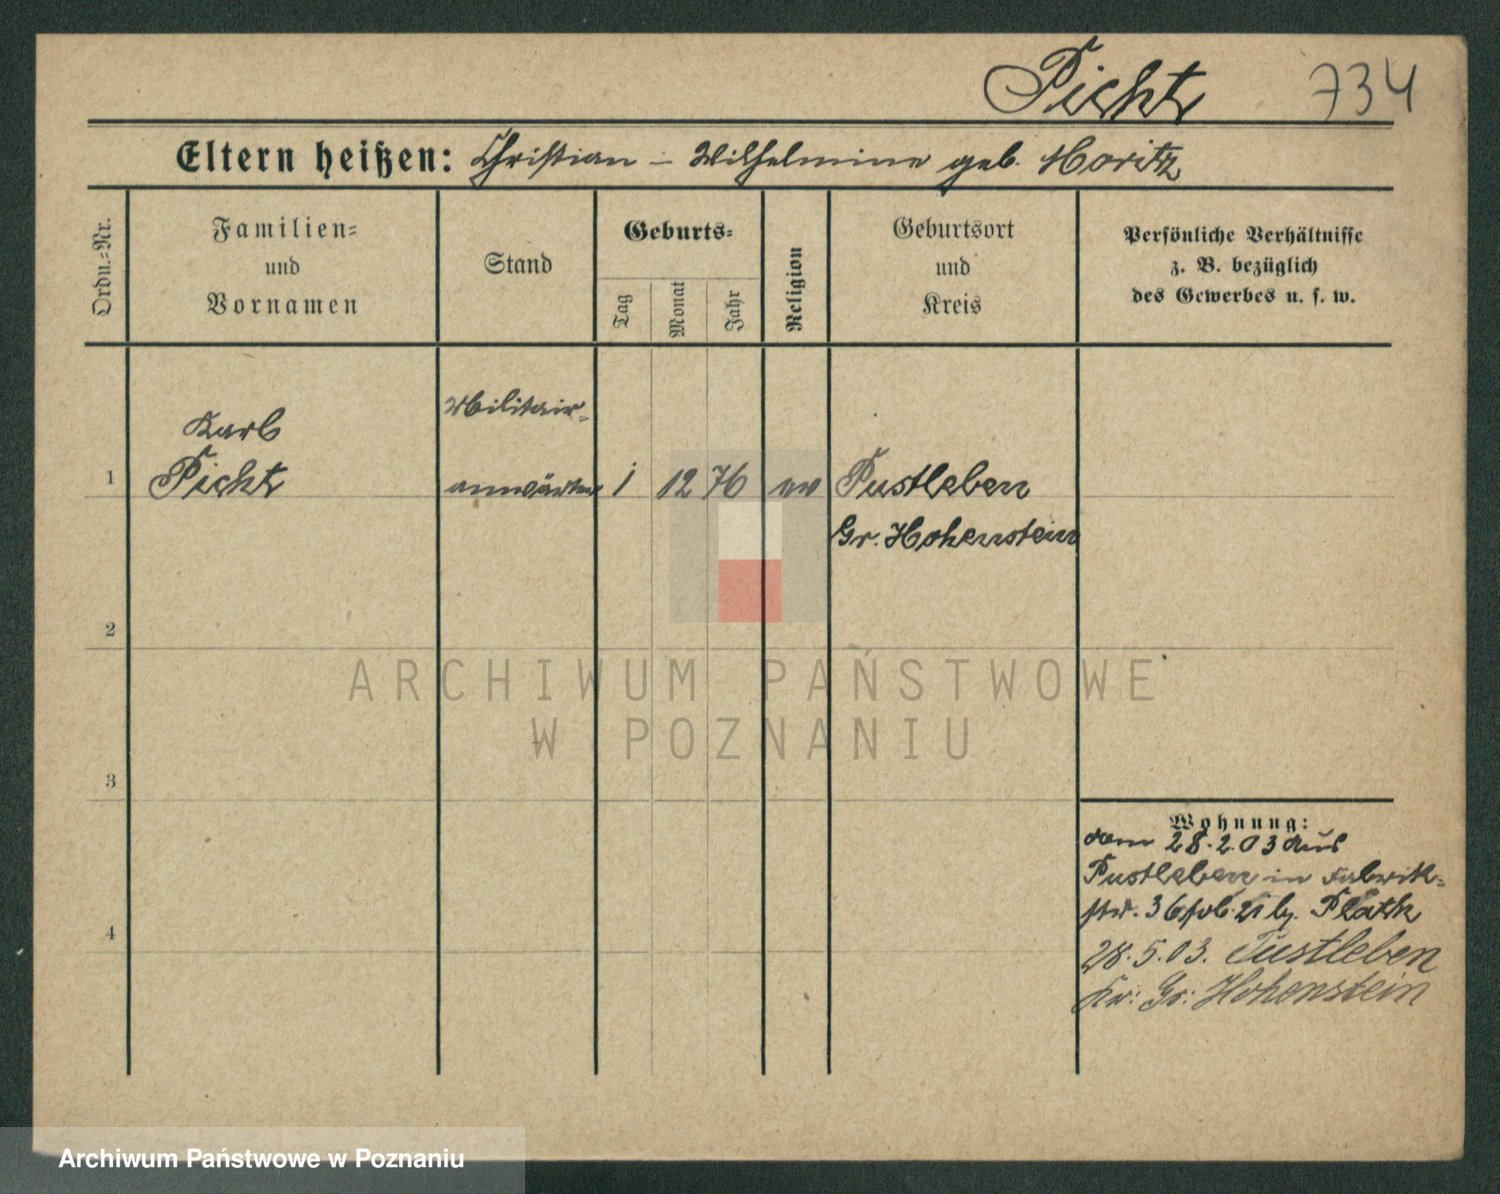 Picht 734
Eltern heißen: Christian - Wilhelmine geb. Moritz
Ordn.-Nr.
Familien-
und
Vornamen
Stand
Geburts-
Tag
Monat
Jahr
Religion
Geburtsort
und
Kreis
Persönliche Verhältnisse
z. B. bezüglich
des Gewerbes u. s. w.
Karl
Picht
Militair-
anwärter
1
1 12 76 ev
Pustleben
Gr. Hohenstein
2
3
4
Wohnung:
vom 28.2.03 aus
Pustleben in Fabrik-
str. 36 bei Plath
28.5.03. Pustleben
Kr: Gr: Hohenstein
ARCHIWUM PAŃSTWOWE
W POZNANIU
Archiwum Państwowe w Poznaniu